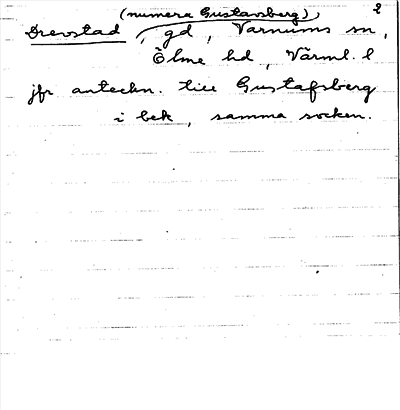 (numera Gustavsberg) 2
Drevstad, gd, Varnums sn,
Ölme hd, Värml. l
jfr anteckn. till Gustafsberg
i bek, samma socken.